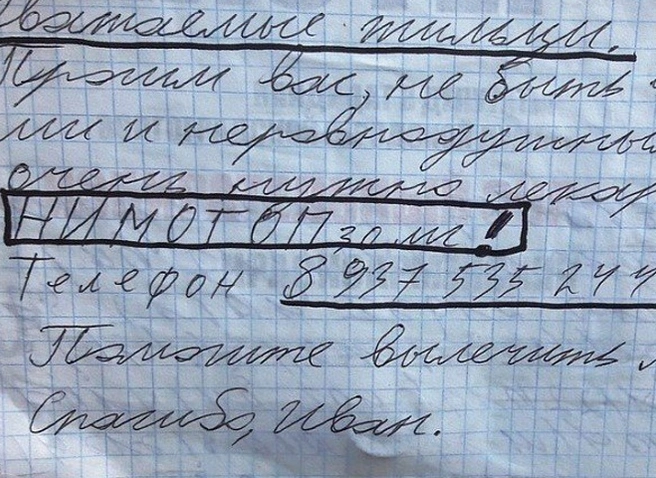 Уважаемые жильцы.
Просим вас, не быть
ми и неравнодушны
очень нужно лекар
НИМОТОП 30 мг!
Телефон 8 937 535 244
Помогите вылечить
Спасибо, Иван.